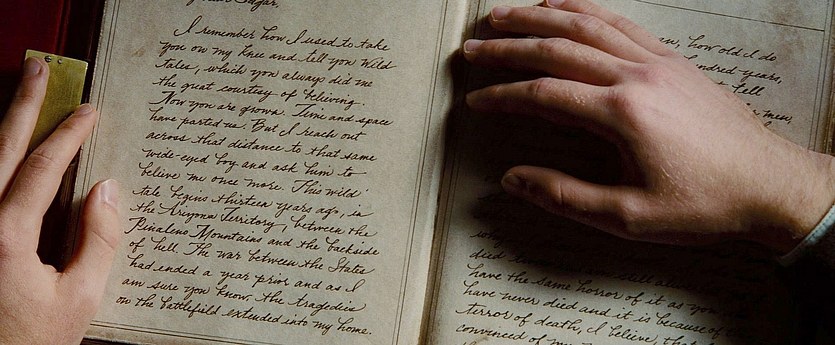 I remember how I used to take
you on my knee and tell you wild
tales, which you always did me
the great courtesy of believing.
Now you are grown. Time and space
have parted us. But I reach out
across that distance to that same
wide-eyed boy and ask him to
believe me once more. This wild
tale begins thirteen years ago, in
the Arizona Territory, between the
Pinaleno Mountains and the backside
of hell. The war between the States
had ended a year prior and as I
am sure you know, the tragedies
on the battlefield extended into my home.
how old I do
hundred years,
tell
men,
died
have the same horror of it as you
have never died and it is because of
terror of death, I believe, that
convinced of my